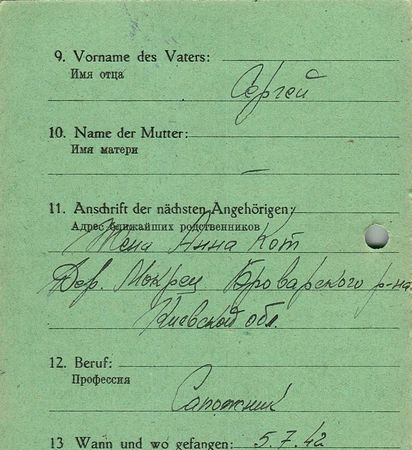 9. Vorname des Vaters:
Имя отца
Сергей
10. Name der Mutter:
Имя матери
—
11. Anschrift der nächsten Angehörigen:
Адрес ближайших родственников
Жена Анна Кот
Дер. Мокрец Броварского р-на
Киевской обл.
12. Beruf:
Профессия
Сапожник
13 Wann und wo gefangen: 5.7.42